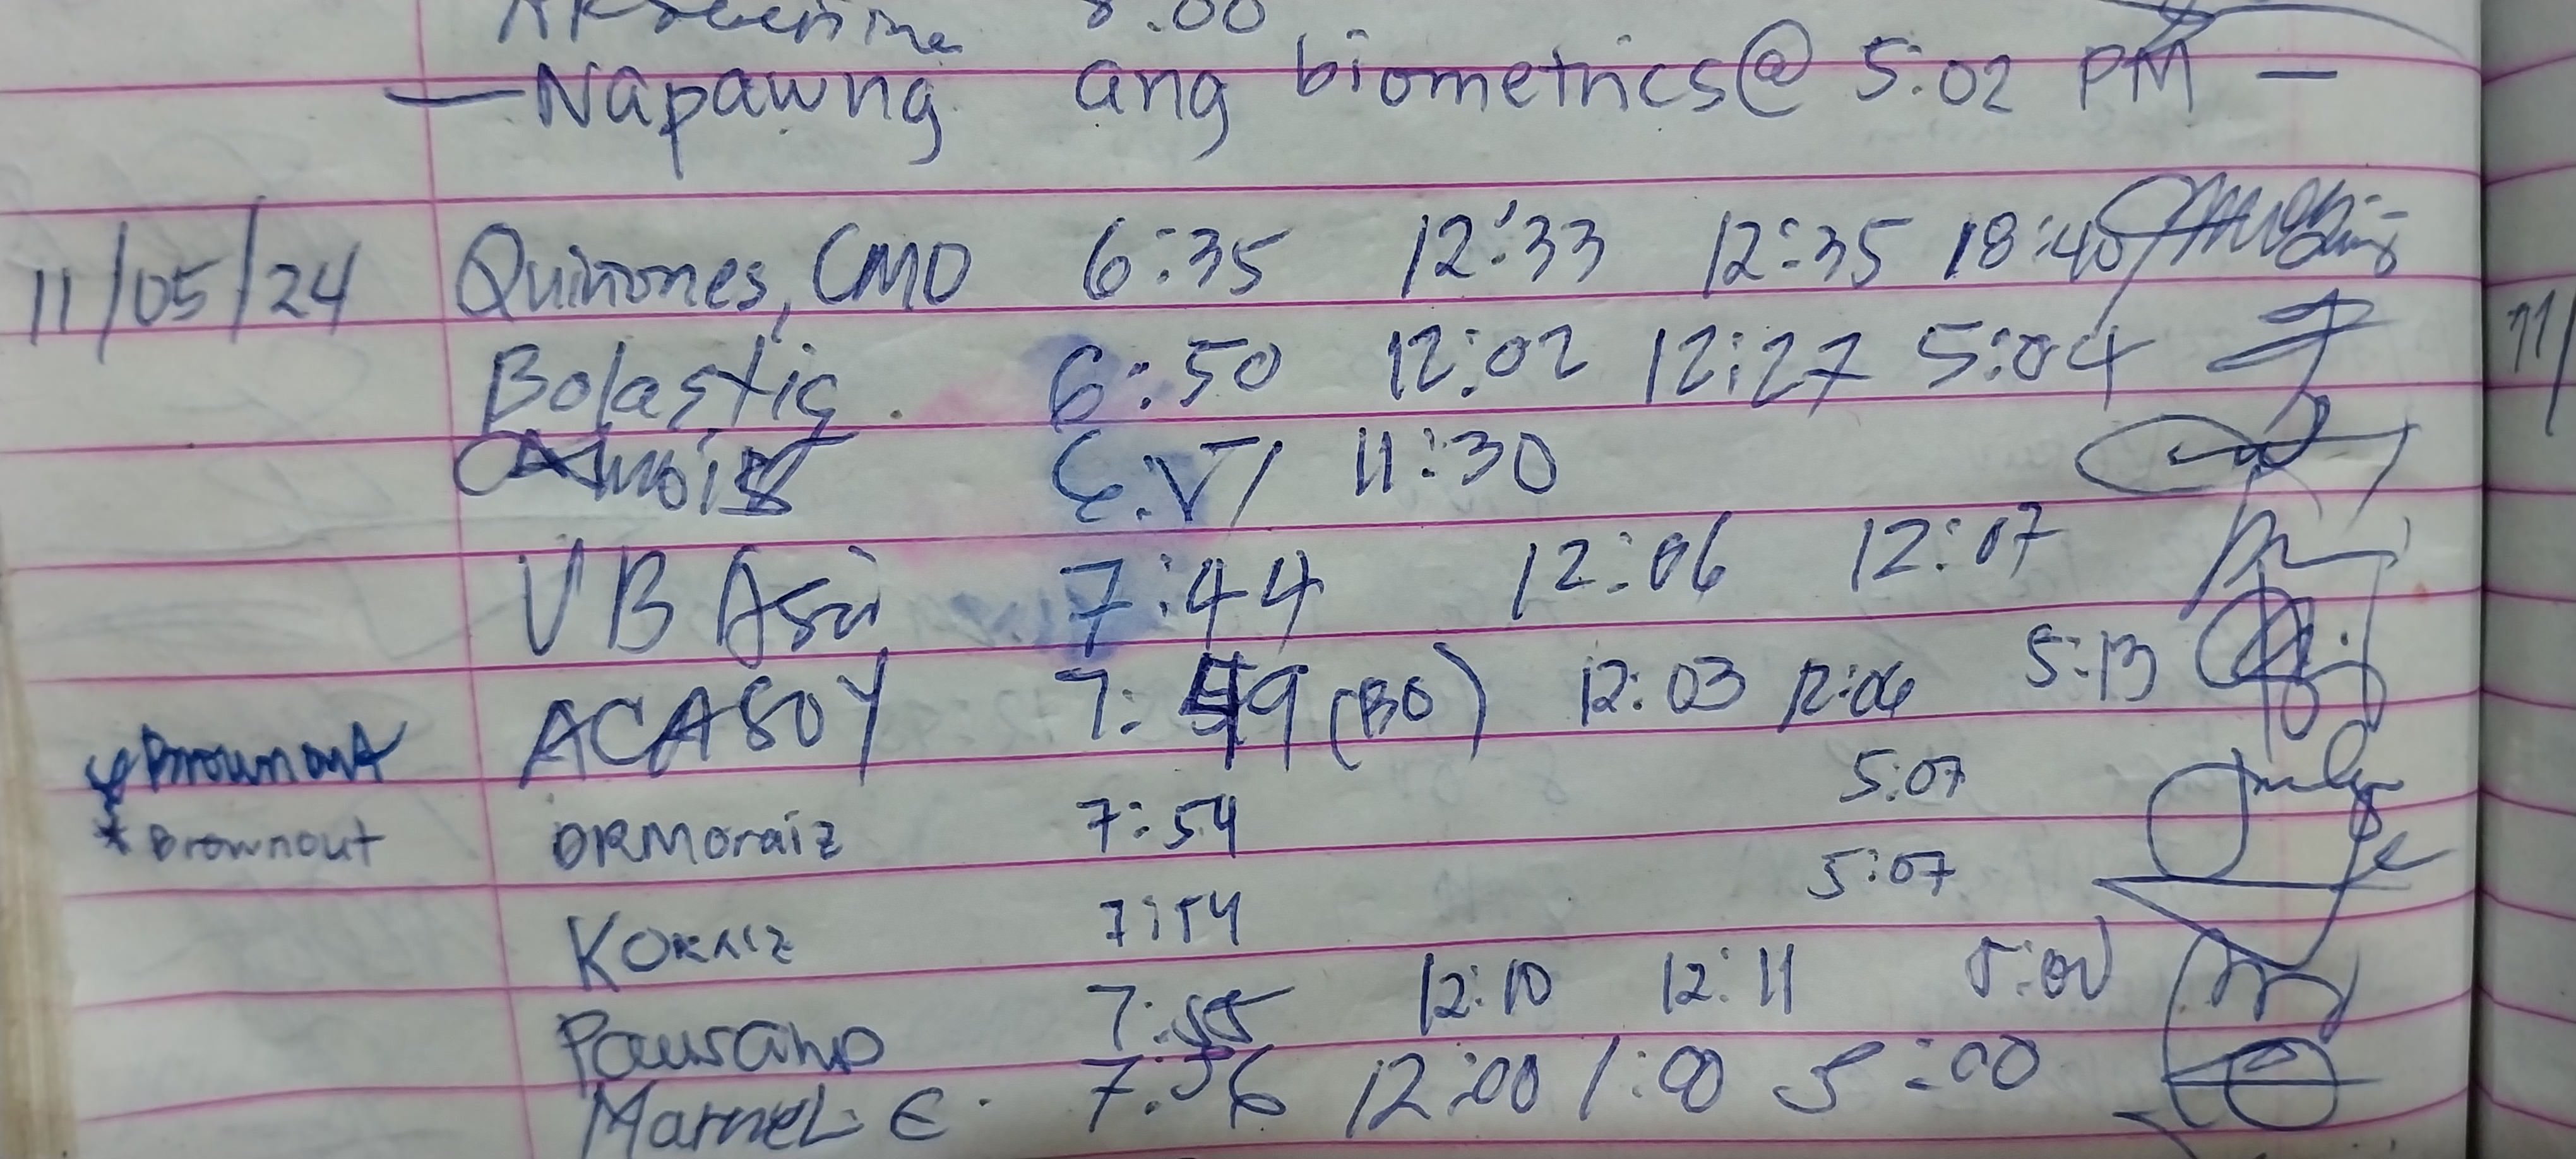 8:00
— Napawng ang biometrics @ 5:02 PM —
11/05/24 Quinones, CMO 6:35 12:33 12:35 18:40
Bolastig 6:50 12:02 12:27 5:04
11:30
VB Asoi 7:44 12:06 12:07
ACASOY 7:49 (BO) 12:03 12:06 5:13
* Brownout
5:07
* Brownout DRMoraiz 7:54
5:07
Korniz 7:54
7:55 12:10 12:11 5:00
Marnel E. 7:56 12:00 1:00 5:00
11/